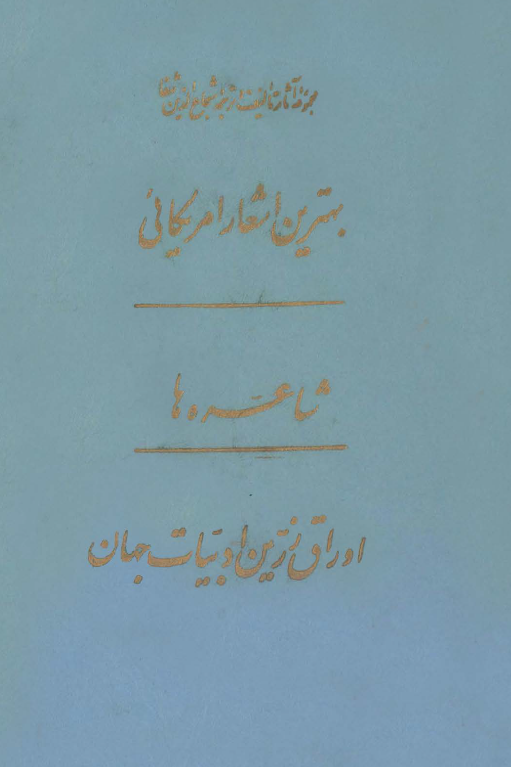 مجموعه آثار تالیف و ترجمه شجاع الدین شفا
بهترین اشعار امریکائی
شاعره ها
اوراق زرّین ادبیّات جهان